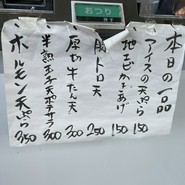 おつり
本日の一品
アイスの天ぷら 150
地エビかきあげ 150
豚トロ天 250
厚切牛たん天 300
半熟玉子天ポテサラ 300
ホルモン天ぷら 350